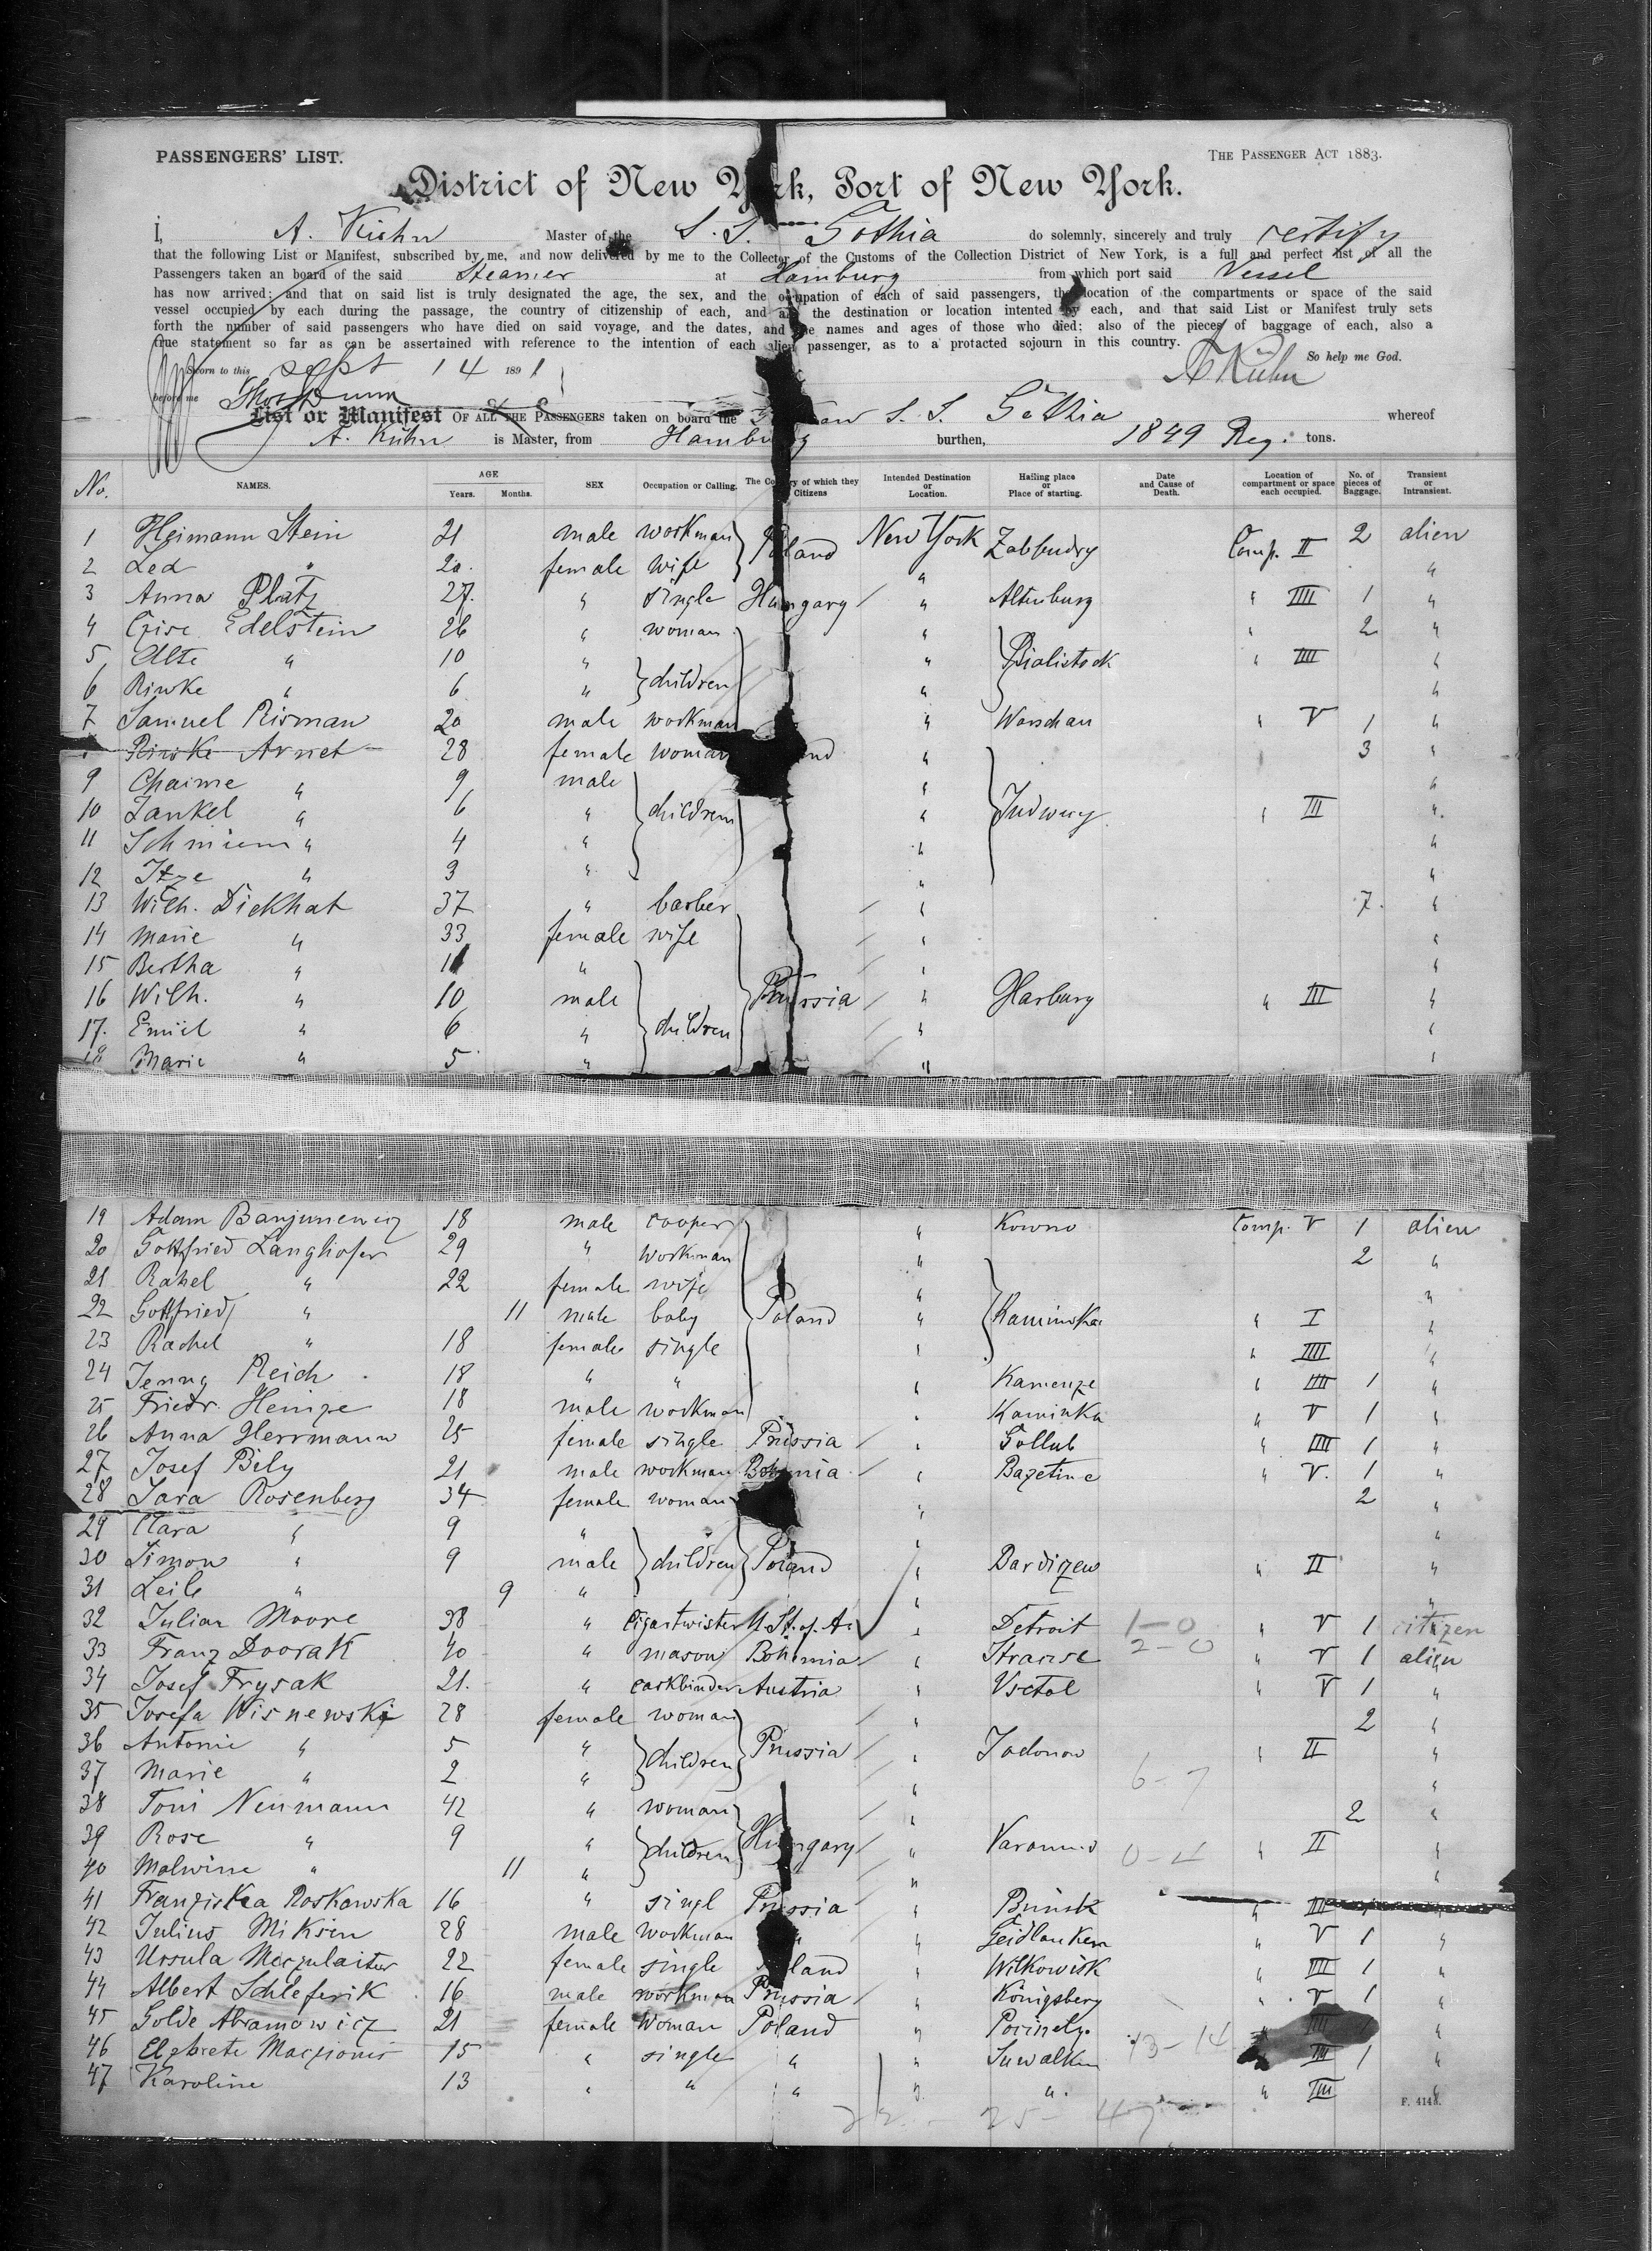 PASSENGERS' LIST.
THE PASSENGER ACT 1883.
District of New York, Port of New York.
I, A. Kühn Master of the S. S. Gothia do solemnly, sincerely and truly certify
that the following List or Manifest, subscribed by me, and now delivered by me to the Collector of the Customs of the Collection District of New York, is a full and perfect list of all the
Passengers taken an board of the said Steamer at Hamburg from which port said Vessel
has now arrived; and that on said list is truly designated the age, the sex, and the occupation of each of said passengers, the location of the compartments or space of the said
vessel occupied by each during the passage, the country of citizenship of each, and also the destination or location intented by each, and that said List or Manifest truly sets
forth the number of said passengers who have died on said voyage, and the dates, and the names and ages of those who died; also of the pieces of baggage of each, also a
true statement so far as can be assertained with reference to the intention of each alien passenger, as to a protacted sojourn in this country.
So help me God.
Sworn to this Sept 14 1891
A Kühn
before me
List or Manifest OF ALL THE PASSENGERS taken on board the S. S. Gothia whereof
A. Kühn is Master, from Hamburg burthen, 1849 Reg. tons.
No. NAMES. AGE Years. Months. SEX Occupation or Calling. The Country of which they Citizens Intended Destination or Location. Hailing place or Place of starting. Date and Cause of Death. Location of compartment or space each occupied. No. of pieces of Baggage. Transient or Intransient.
1 Heimann Stein 21 male workman Poland New York Comp. II 2 alien
2 Lea " 20 female wife " "
3 Anna Platz 27 " single Hungary " Altenburg " IIII 1 "
4 Edelstein 26 " woman " " 2 "
5 Alte " 10 " children " Bialistock " IIII "
6 Riwke " 6 " " "
7 Samuel Risman 20 male workman " Warschau " V 1 "
Riwke Arnet 28 female woman " 3 "
9 Chaime " 9 male " "
10 Jankel " 6 " children " " III "
11 " 4 " " "
12 Itze " 3 " " "
13 Wilh. Dickhat 37 " barber " 7 "
14 Marie " 33 female wife " "
15 Bertha " 11 " " "
16 Wilh. " 10 male Prussia " Harburg " III "
17. Emil " 6 " children " "
18 Marie " 5 " " "
19 Adam 18 male cooper " Kowno Comp. V 1 alien
20 Gottfried Langhofer 29 " workman " 2 "
21 Rahel " 22 female wife " "
22 Gottfried " 11 male baby Poland " Kaminska " I "
23 Rachel " 18 female single " " IIII "
24 Jenny Reich 18 " " " Kamenze " IIII 1 "
25 Friedr. Heinze 18 male workman " Kaminka " V 1 "
26 Anna Herrmann 25 female single Prussia " Gollub " IIII 1 "
27 Josef Bily 21 male workman Bohemia " Bazetine " V. 1 "
28 Sara Rosenberg 34 female woman " 2 "
29 Clara " 9 " " "
30 Simon " 9 male children Poland " " II "
31 Leib " 9 " " "
32 Julian Moore 38 " Cigartwister U. St. of A. " Detroit 1-0 " V 1 citizen
33 Franz Dvorak 40 " mason Bohemia " 2-0 " V 1 alien
34 Josef Frysak 21. " caskbinder Austria " Vsetal " V 1 "
35 Josefa Wisnewski 28 female woman " 2 "
36 Antonie " 5 " children Prussia " " II "
37 Marie " 2 " " 6-7 "
38 Toni Neumann 42 " woman " 2 "
39 Rose " 9 " children Hungary " " II "
40 Malwine " 11 " " 0-4 "
41 Franziska Roskowska 16 " singl Prussia " " III "
42 Julius Miksin 28 male workman " " V 1 "
43 Ursula 22 female single Poland " Wilkowisk " IIII 1 "
44 Albert Schleferik 16 male workman Prussia " Königsberg " V 1 "
45 Golde Abramowicz 21 female woman Poland " " IIII "
46 15 " single " " Suwalken 13-14 " IIII 1 "
47 Karoline 13 " " " " " " IIII "
F. 414
22 - 25 - 47